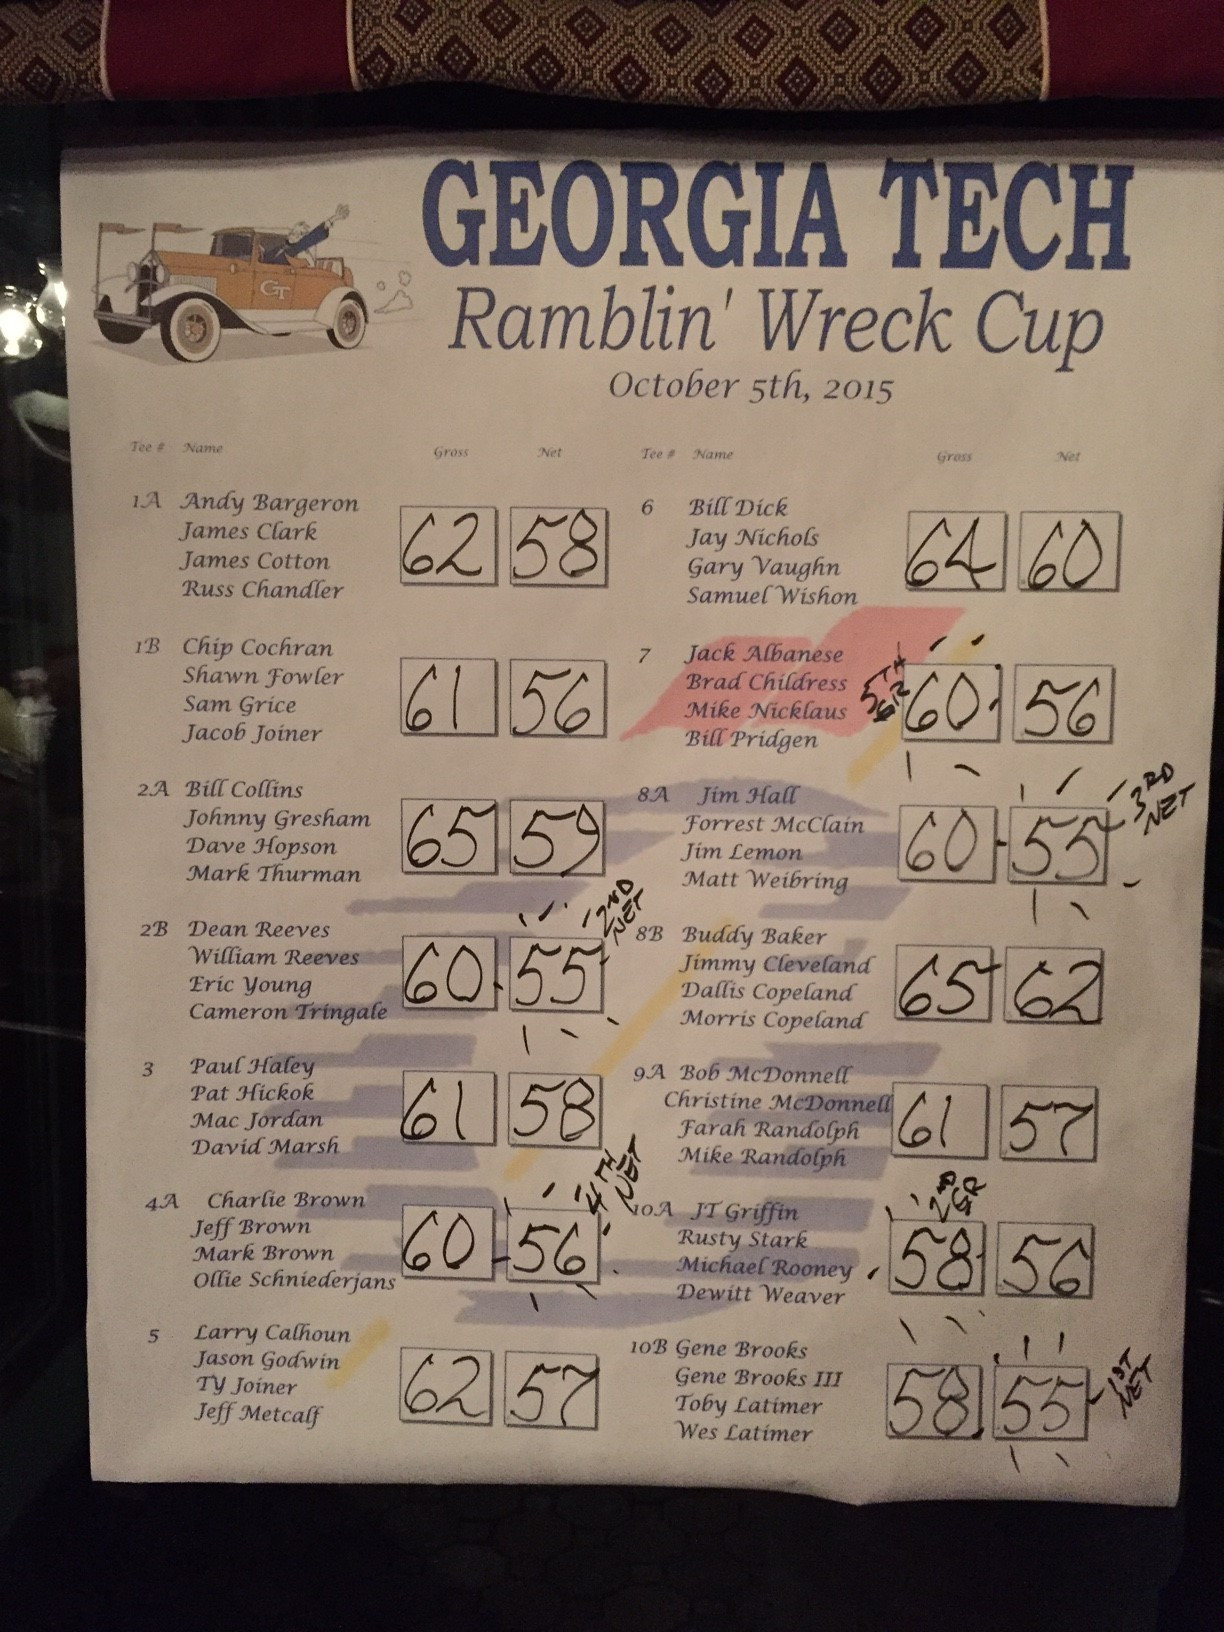 GEORGIA TECH
Ramblin' Wreck Cup
October 5th, 2015
GT
Tee # Name Gross Net
1A Andy Bargeron
James Clark
James Cotton
Russ Chandler
62 58
1B Chip Cochran
Shawn Fowler
Sam Grice
Jacob Joiner
61 56
2A Bill Collins
Johnny Gresham
Dave Hopson
Mark Thurman
65 59
2B Dean Reeves
William Reeves
Eric Young
Cameron Tringale
60 55
2ND
NET
3 Paul Haley
Pat Hickok
Mac Jordan
David Marsh
61 58
4A Charlie Brown
Jeff Brown
Mark Brown
Ollie Schniederjans
60 56
4TH
NET
5 Larry Calhoun
Jason Godwin
TY Joiner
Jeff Metcalf
62 57
Tee # Name Gross Net
6 Bill Dick
Jay Nichols
Gary Vaughn
Samuel Wishon
64 60
7 Jack Albanese
Brad Childress
Mike Nicklaus
Bill Pridgen
5TH
GR
60 56
8A Jim Hall
Forrest McClain
Jim Lemon
Matt Weibring
60 55
3RD
NET
8B Buddy Baker
Jimmy Cleveland
Dallis Copeland
Morris Copeland
65 62
9A Bob McDonnell
Christine McDonnell
Farah Randolph
Mike Randolph
61 57
10A JT Griffin
Rusty Stark
Michael Rooney
Dewitt Weaver
2ND
GR
58 56
10B Gene Brooks
Gene Brooks III
Toby Latimer
Wes Latimer
58 55
1ST
NET